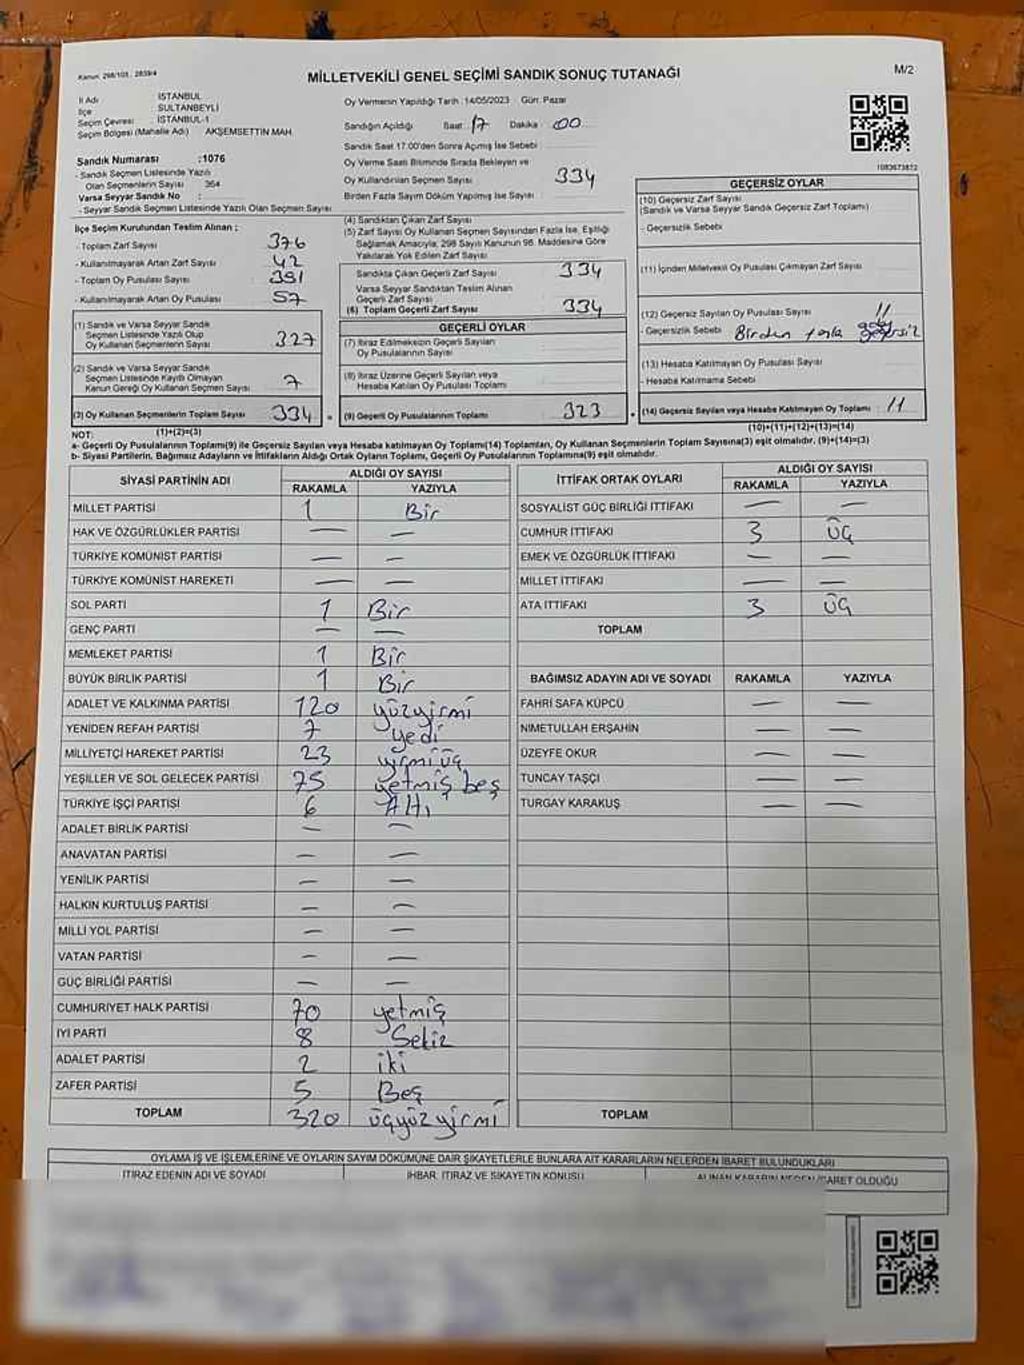 Kanun: 298/105, 2839/4
MİLLETVEKİLİ GENEL SEÇİMİ SANDIK SONUÇ TUTANAĞI
M/2
İl Adı İSTANBUL
İlçe SULTANBEYLİ
Seçim Çevresi İSTANBUL-1
Seçim Bölgesi (Mahalle Adı) AKŞEMSETTİN MAH.
Sandık Numarası :1076
- Sandık Seçmen Listesinde Yazılı
Olan Seçmenlerin Sayısı 364
Varsa Seyyar Sandık No :
- Seyyar Sandık Seçmen Listesinde Yazılı Olan Seçmen Sayısı
Oy Vermenin Yapıldığı Tarih :14/05/2023 Gün: Pazar
Sandığın Açıldığı Saat: 17 Dakika :00
Sandık Saat 17.00'den Sonra Açılmış İse Sebebi
Oy Verme Saati Bitiminde Sırada Bekleyen ve
Oy Kullandırılan Seçmen Sayısı 334
Birden Fazla Sayım Döküm Yapılmış İse Sayısı
1083673872
İlçe Seçim Kurulundan Teslim Alınan ;
- Toplam Zarf Sayısı 376
- Kullanılmayarak Artan Zarf Sayısı 42
- Toplam Oy Pusulası Sayısı 391
- Kullanılmayarak Artan Oy Pusulası 57
(1) Sandık ve Varsa Seyyar Sandık
Seçmen Listesinde Yazılı Olup
Oy Kullanan Seçmenlerin Sayısı 327
(2) Sandık ve Varsa Seyyar Sandık
Seçmen Listesinde Kayıtlı Olmayan
Kanun Gereği Oy Kullanan Seçmen Sayısı 7
(3) Oy Kullanan Seçmenlerin Toplam Sayısı 334
(1)+(2)=(3)
(4) Sandıktan Çıkan Zarf Sayısı
(5) Zarf Sayısı Oy Kullanan Seçmen Sayısından Fazla İse, Eşitliği
Sağlamak Amacıyla, 298 Sayılı Kanunun 98. Maddesine Göre
Yakılarak Yok Edilen Zarf Sayısı
Sandıkta Çıkan Geçerli Zarf Sayısı 334
Varsa Seyyar Sandıktan Teslim Alınan
Geçerli Zarf Sayısı
(6) Toplam Geçerli Zarf Sayısı 334
GEÇERLİ OYLAR
(7) İtiraz Edilmeksizin Geçerli Sayılan
Oy Pusulalarının Sayısı
(8) İtiraz Üzerine Geçerli Sayılan veya
Hesaba Katılan Oy Pusulası Toplamı
(9) Geçerli Oy Pusulalarının Toplamı 323
GEÇERSİZ OYLAR
(10) Geçersiz Zarf Sayısı
(Sandık ve Varsa Seyyar Sandık Geçersiz Zarf Toplamı)
- Geçersizlik Sebebi
(11) İçinden Milletvekili Oy Pusulası Çıkmayan Zarf Sayısı
(12) Geçersiz Sayılan Oy Pusulası Sayısı 11
- Geçersizlik Sebebi Birden fazla geçersiz
(13) Hesaba Katılmayan Oy Pusulası Sayısı
- Hesaba Katılmama Sebebi
(14) Geçersiz Sayılan veya Hesaba Katılmayan Oy Toplamı : 11
(10)+(11)+(12)+(13)=(14)
NOT:
a- Geçerli Oy Pusulalarının Toplamı(9) ile Geçersiz Sayılan veya Hesaba katılmayan Oy Toplamı(14) Toplamları, Oy Kullanan Seçmenlerin Toplam Sayısına(3) eşit olmalıdır. (9)+(14)=(3)
b- Siyasi Partilerin, Bağımsız Adayların ve İttifakların Aldığı Ortak Oyların Toplamı, Geçerli Oy Pusulalarının Toplamına(9) eşit olmalıdır.
SİYASİ PARTİNİN ADI ALDIĞI OY SAYISI
RAKAMLA YAZIYLA
MİLLET PARTİSİ 1 Bir
HAK VE ÖZGÜRLÜKLER PARTİSİ — —
TÜRKİYE KOMÜNİST PARTİSİ — —
TÜRKİYE KOMÜNİST HAREKETİ — —
SOL PARTİ 1 Bir
GENÇ PARTİ — —
MEMLEKET PARTİSİ 1 Bir
BÜYÜK BİRLİK PARTİSİ 1 Bir
ADALET VE KALKINMA PARTİSİ 120 yüzyirmi
YENİDEN REFAH PARTİSİ 7 yedi
MİLLİYETÇİ HAREKET PARTİSİ 23 yirmi üç
YEŞİLLER VE SOL GELECEK PARTİSİ 75 yetmiş beş
TÜRKİYE İŞÇİ PARTİSİ 6 Altı
ADALET BİRLİK PARTİSİ — —
ANAVATAN PARTİSİ — —
YENİLİK PARTİSİ — —
HALKIN KURTULUŞ PARTİSİ — —
MİLLİ YOL PARTİSİ — —
VATAN PARTİSİ — —
GÜÇ BİRLİĞİ PARTİSİ — —
CUMHURİYET HALK PARTİSİ 70 yetmiş
İYİ PARTİ 8 Sekiz
ADALET PARTİSİ 2 iki
ZAFER PARTİSİ 5 Beş
TOPLAM 320 üçyüzyirmi
İTTİFAK ORTAK OYLARI ALDIĞI OY SAYISI
RAKAMLA YAZIYLA
SOSYALİST GÜÇ BİRLİĞİ İTTİFAKI — —
CUMHUR İTTİFAKI 3 üç
EMEK VE ÖZGÜRLÜK İTTİFAKI — —
MİLLET İTTİFAKI — —
ATA İTTİFAKI 3 üç
TOPLAM
BAĞIMSIZ ADAYIN ADI VE SOYADI RAKAMLA YAZIYLA
FAHRİ SAFA KÜPCÜ — —
NİMETULLAH ERŞAHİN — —
ÜZEYFE OKUR — —
TUNCAY TAŞÇI — —
TURGAY KARAKUŞ — —
TOPLAM
OYLAMA İŞ VE İŞLEMLERİNE VE OYLARIN SAYIM DÖKÜMÜNE DAİR ŞİKAYETLERLE BUNLARA AİT KARARLARIN NELERDEN İBARET BULUNDUKLARI
İTİRAZ EDENİN ADI VE SOYADI İHBAR, İTİRAZ VE ŞİKAYETİN KONUSU ALINAN KARARIN NEDEN İBARET OLDUĞU